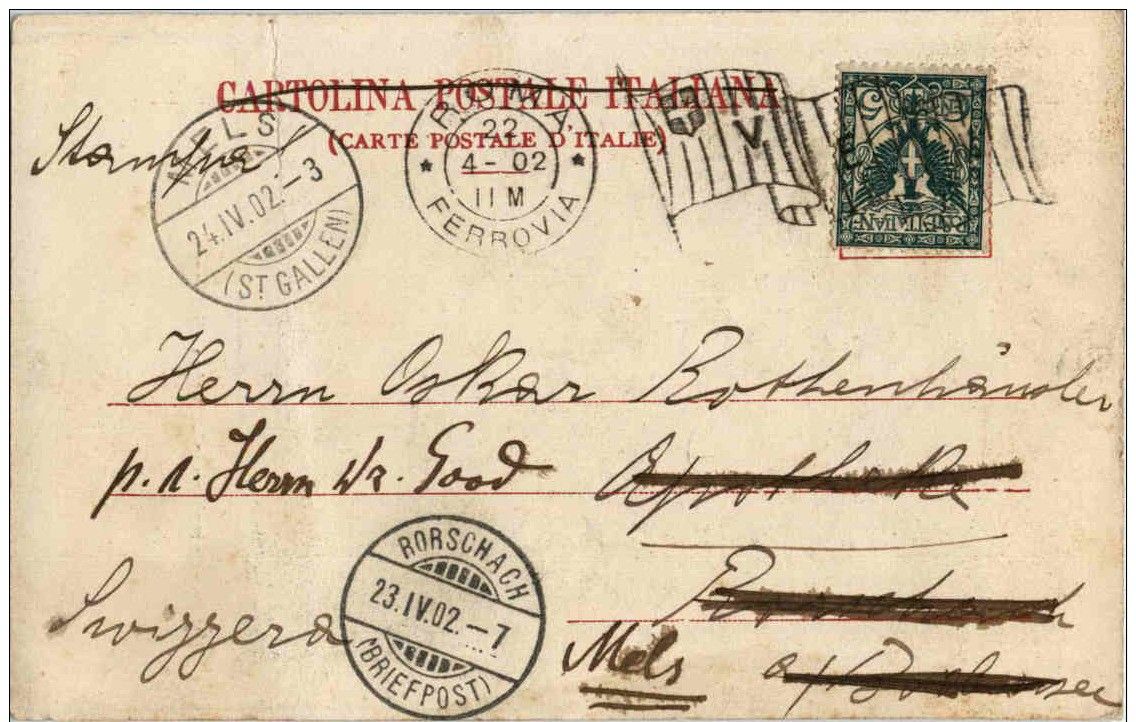 CARTOLINA POSTALE ITALIANA
(CARTE POSTALE D'ITALIE)
Stampa
MELS
24.IV.02.-3
(ST GALLEN)
ROMA
22
4-02
11 M
* FERROVIA *
V
5
POSTE ITALIANE
Herrn Oskar Rothenhäusler
p. a. Herrn Dr. Good
Apotheke
Rorschach
a/Bodensee
Mels
Swizzera
RORSCHACH
23.IV.02.-7
(BRIEFPOST)